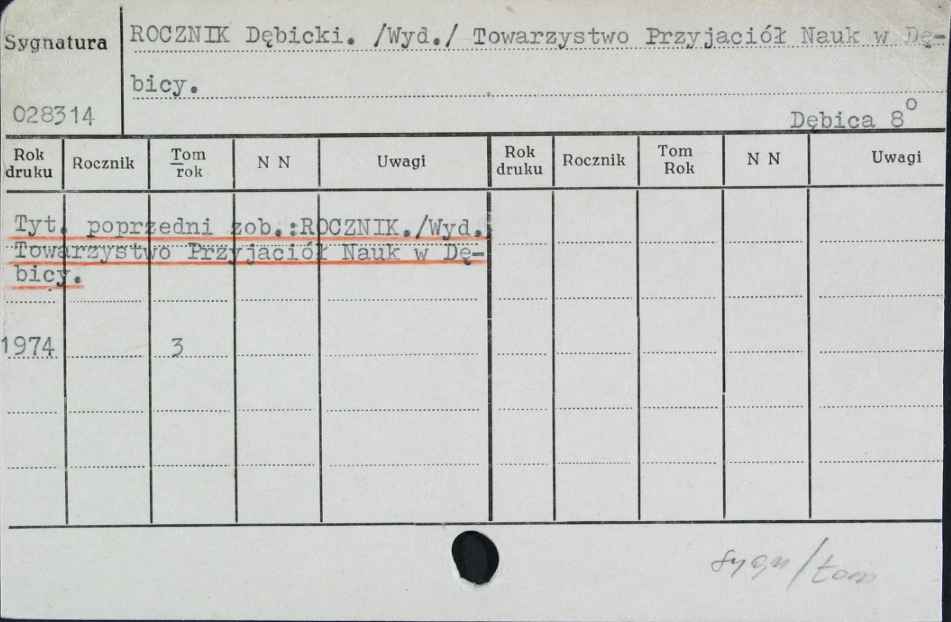 Sygnatura
ROCZNIK Dębicki. /Wyd./ Towarzystwo Przyjaciół Nauk w Dę-
bicy.
028314
Dębica 8⁰
Rok druku Rocznik Tom rok N N Uwagi Rok druku Rocznik Tom Rok N N Uwagi
Tyt. poprzedni zob.:ROCZNIK./Wyd.
Towarzystwo Przyjaciół Nauk w Dę-
bicy.
1974 3
sygn/tom